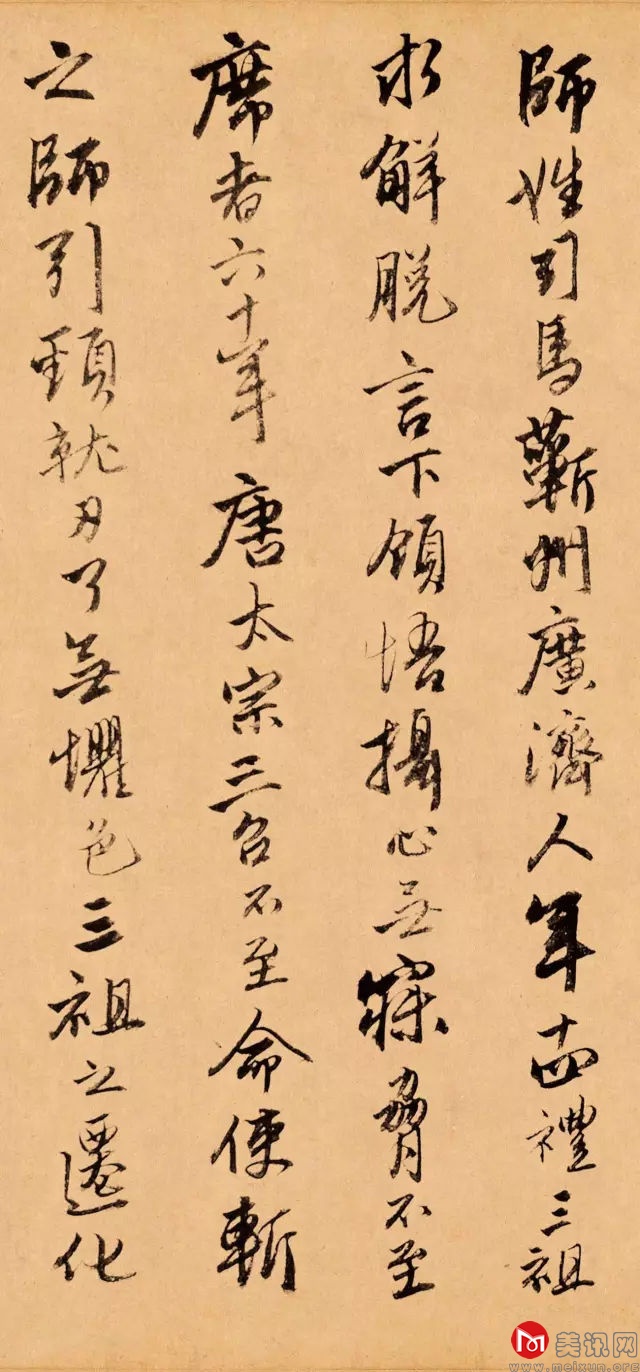 師姓司馬蘄州廣濟人年十四禮三祖
求解脫言下領悟攝心無寐脅不至
席者六十年唐太宗三召不至命使斬
之師引頸就刃了無懼色三祖之遷化
美讯网
www.meixun.org